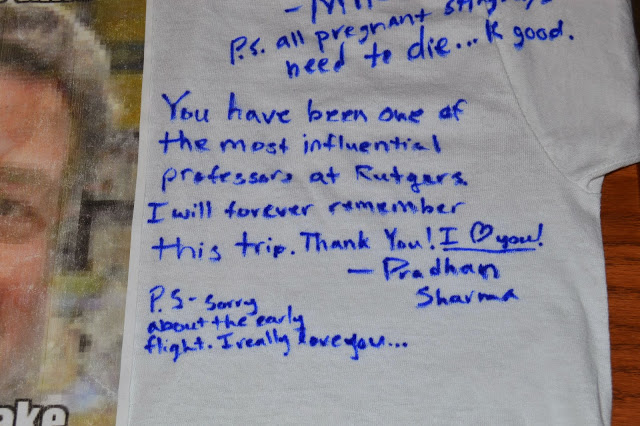 P.S. all pregnant
need to die... K good.
You have been one of
the most influential
professors at Rutgers.
I will forever remember
this trip. Thank You! I ♡ you!
— Pradhan
Sharma
P.S - sorry
about the early
flight. I really love you...
ake